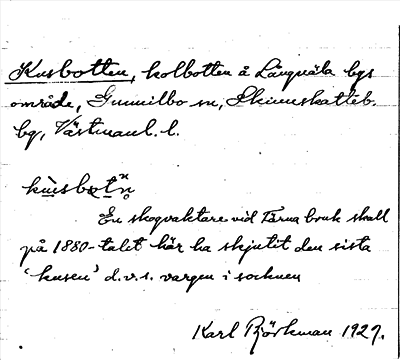 Kusbotten, kolbotten å Långnäla bgs
område, Gunnilbo sn, Skinnskatteb.
bg, Västmanl. l.
kùsbǫtn̥
En skogvaktare vid Färna bruk skall
på 1880-talet här ha skjutit den sista
'kusen' d.v.s. vargen i socknen
Karl Björkman 1929.